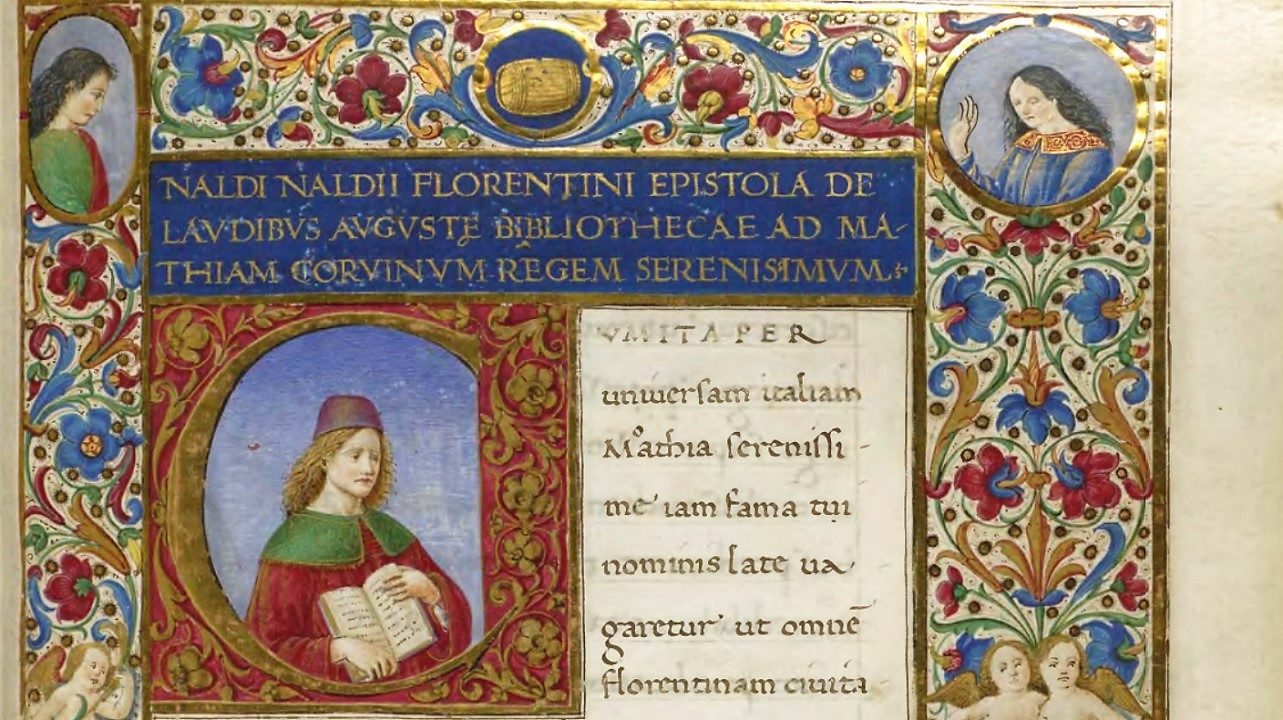 NALDI NALDII FLORENTINI EPISTOLA DE
LAVDIBVS AVGVSTE BIBLIOTHECAE AD MA-
THIAM CORVINVM REGEM SERENISIMVM
VM ITA PER
uniuersam italiam
Mathia serenissi-
me iam fama tui
nominis late ua-
garetur ut omnē
florentinam ciuita